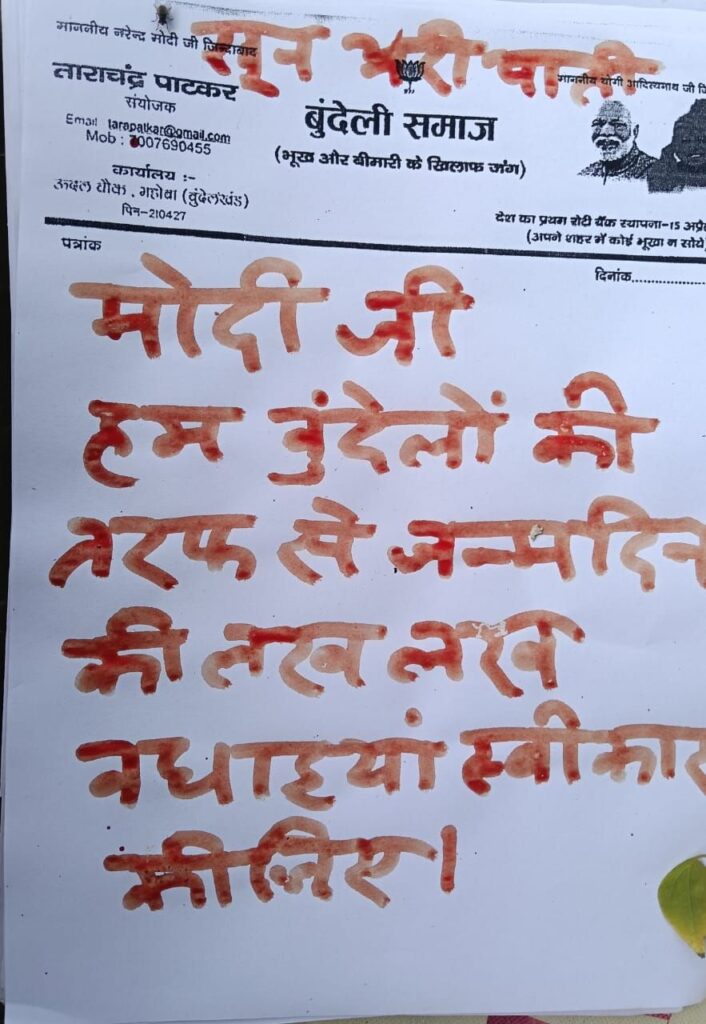 माननीय नरेन्द्र मोदी जी जिन्दाबाद
खून भरी पाती
माननीय योगी आदित्यनाथ जी जि
ताराचंद्र पाटकर
संयोजक
Email tarapatkar@gmail.com
Mob : 7007690455
बुंदेली समाज
(भूख और बीमारी के खिलाफ जंग)
कार्यालय :-
ऊदल चौक, महोबा (बुंदेलखंड)
पिन-210427
देश का प्रथम रोटी बैंक स्थापना-15 अप्रै
(अपने शहर में कोई भूखा न सोये)
पत्रांक
दिनांक
मोदी जी
हम बुंदेलों की
तरफ से जन्मदिन
की लख लख
बधाइयां स्वीकार
कीजिए।